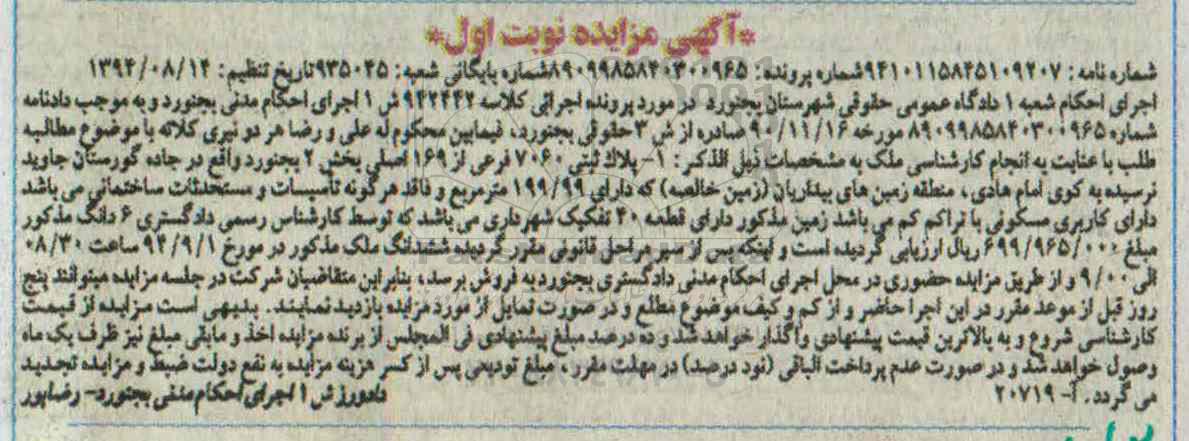 *آگهی مزایده نوبت اول*
شماره نامه: ۹۴۱۰۱۱۵۸۴۵۱۰۹۲۰۷شماره پرونده: ۸۹۰۹۹۸۵۸۴۰۳۰۰۹۶۵شماره بایگانی شعبه: ۹۳۵۰۴۵تاریخ تنظیم: ۱۳۹۴/۰۸/۱۴
اجرای احکام شعبه ۱ دادگاه عمومی حقوقی شهرستان بجنورد در مورد پرونده اجرائی کلاسه ۹۴۲۴۴۲ ش ۱ اجرای احکام مدنی بجنورد و به موجب دادنامه
شماره ۸۹۰۹۹۸۵۸۴۰۳۰۰۹۶۵ مورخه ۹۰/۱۱/۱۶ صادره از ش ۳حقوقی بجنورد، فیمابین محکوم له علی و رضا هر دو نیری کلاته با موضوع مطالبه
طلب با عنایت به انجام کارشناسی ملک به مشخصات ذیل الذکر: ۱- پلاک ثبتی ۷۰۶۰ فرعی از ۱۶۹ اصلی بخش ۲ بجنورد واقع در جاده گورستان جاوید
نرسیده به کوی امام هادی، منطقه زمین های بیداریان (زمین خالصه) که دارای ۱۹۹/۹۹ مترمربع و فاقد هرگونه تأسیسات و مستحدثات ساختمانی می باشد
دارای کاربری مسکونی با تراکم کم می باشد زمین مذکور دارای قطعه ۴۰ تفکیک شهرداری می باشد که توسط کارشناس رسمی دادگستری ۶ دانگ مذکور
مبلغ ۶۹۹/۹۶۵/۰۰۰ ریال ارزیابی گردیده است و اینکه پس از سیر مراحل قانونی مقرر گردیده ششدانگ ملک مذکور در مورخ ۹۴/۹/۱ ساعت ۰۸/۳۰
الی ۹/۰۰ و از طریق مزایده حضوری در محل اجرای احکام مدنی دادگستری بجنورد به فروش برسد، بنابراین متقاضیان شرکت در جلسه مزایده میتوانند پنج
روز قبل از موعد مقرر در این اجرا حاضر و از کم و کیف موضوع مطلع و در صورت تمایل از مورد مزایده بازدید نمایند. بدیهی است مزایده از قیمت
کارشناسی شروع و به بالاترین قیمت پیشنهادی واگذار خواهد شد و ده درصد مبلغ پیشنهادی فی المجلس از برنده مزایده اخذ و مابقی مبلغ نیز ظرف یک ماه
وصول خواهد شد و در صورت عدم پرداخت الباقی (نود درصد) در مهلت مقرر، مبلغ تودیعی پس از کسر هزینه مزایده به نفع دولت ضبط و مزایده تجدید
می گردد. آ- ۲۰۷۱۹ دادورز ش ۱ اجرای احکام مدنی بجنورد- رضاپور